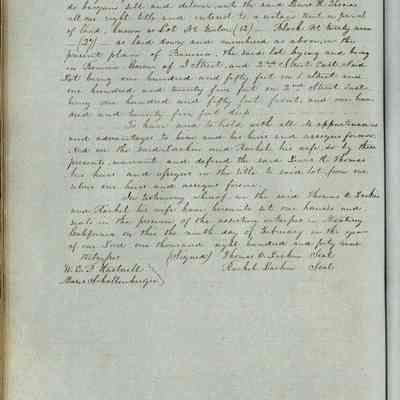 do bargain sell and deliver unto the said Lewis H. Thomas
all our right title and interest to a certain tract or parcel
of land, known as Lot No (12) Block No thirty nine
(39) as laid down and numbered as above in the
present plan of Benicia, the said lot lying and being
in Benicia, Corner of I Street, and 2nd Street East. Said
Lot being one hundred and fifty feet on I Street and
one hundred and twenty five feet on 2nd Street East
being one hundred and fifty feet front, and one hun
dred and twenty five feet deep
To have and to hold with all its appurtenances
and advantages to him and his heirs and assigns forever
And we the said Larkin and Rachel his wife do by these
presents warrant and defend the said Lewis H. Thomas
his heirs and assigns in the title to said lot from our
selves our heirs and assigns forever
In testimony whereof we the said Thomas O. Larkin
and Rachel his wife have hereunto set our hands and
seals in the presence of the assisting witnesses in Monterey
California on this the ninth day of February in the year
of our Lord one thousand eight hundred and forty nine
Witnesses (Signed) Thomas O. Larkin Seal
W. E. P. Hartnell Rachel Larkin Seal
Marie Schallenberger